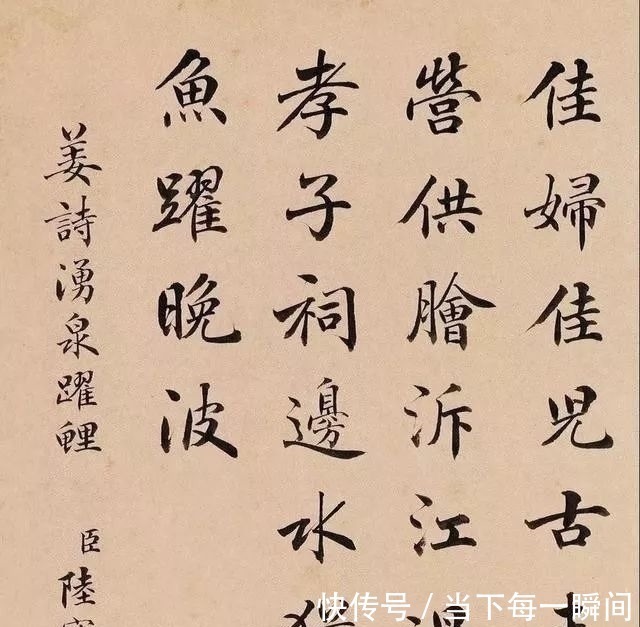 佳婦佳兒古
營供膾泝江
孝子祠邊水
魚躍晚波
姜詩湧泉躍鯉
臣陸
快传号／当下每一瞬间